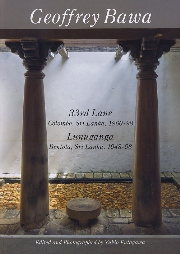 Geoffrey Bawa
33rd Lane
Colombo, Sri Lanka, 1960-98
Lunuganga
Bentota, Sri Lanka, 1948-98
Edited and Photographed by Yukio Futagawa